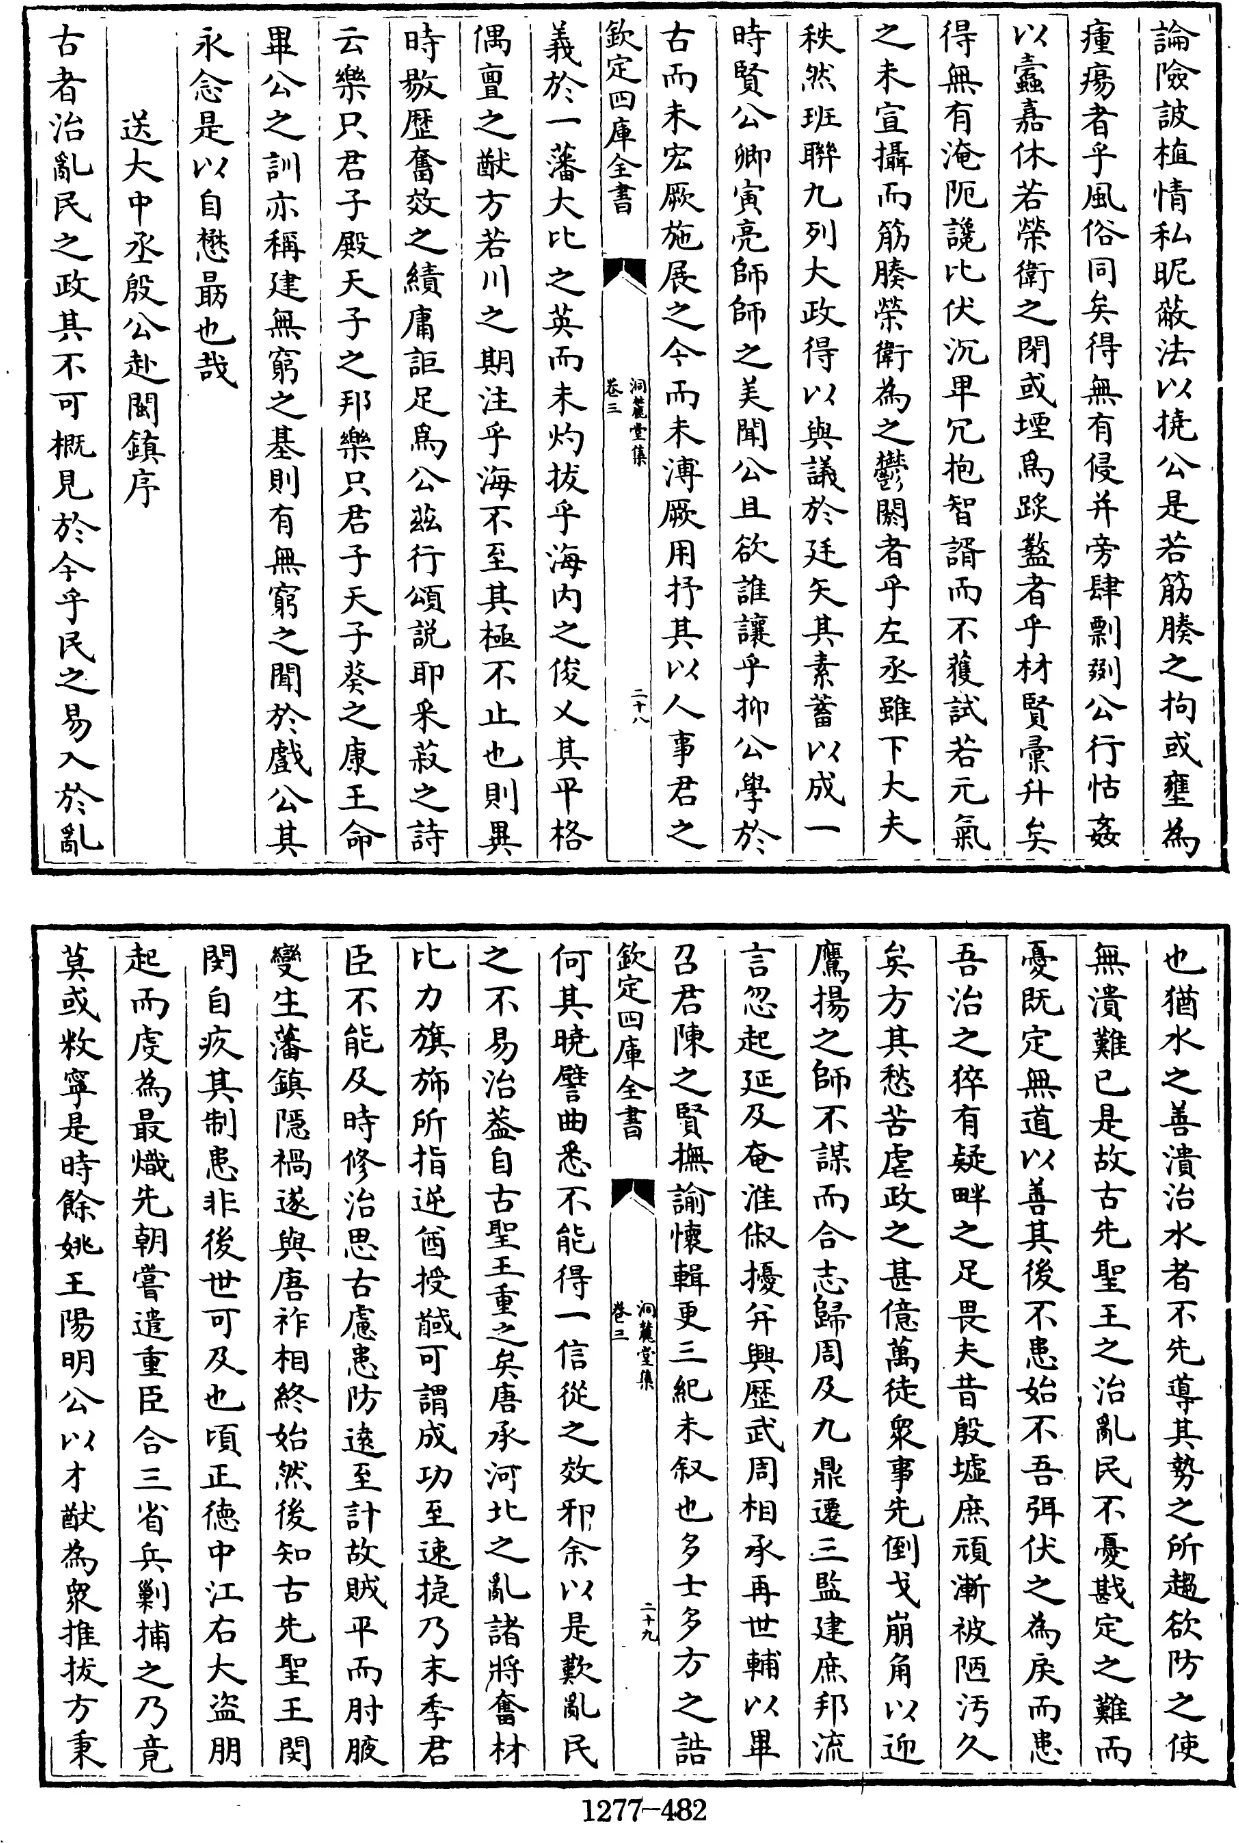 論險詖植情私昵蔽法以撓公是若筋腠之拘或壅為
瘇瘍者乎風俗同矣得無有侵并旁肆剽剟公行怙姦
以蠧嘉休若榮衛之閉或堙為踠盭者乎材賢彚升矣
得無有淹阨讒比伏沉卑冗抱智諝而不獲試若元氣
之未宣攝而筋腠榮衛為之鬱閼者乎左丞雖下大夫
秩然班聯九列大政得以與議於廷矢其素蓄以成一
時賢公卿寅亮師師之美聞公且欲誰讓乎抑公學於
古而未宏厥施展之今而未溥厥用抒其以人事君之
欽定四庫全書
洞麓堂集
卷三
二十八
義於一藩大比之英而未灼拔乎海内之俊乂其平格
偶亶之猷方若川之期注乎海不至其極不止也則異
時敭歷奮效之績庸詎足為公兹行頌說耶采菽之詩
云樂只君子殿天子之邦樂只君子天子葵之康王命
畢公之訓亦稱建無窮之基則有無窮之聞於戲公其
永念是以自懋朂也哉
送大中丞殷公赴閩鎮序
古者治亂民之政其不可概見於今乎民之易入於亂
也猶水之善潰治水者不先導其勢之所趨欲防之使
無潰難已是故古先聖王之治亂民不憂戡定之難而
憂既定無道以善其後不患始不吾弭伏之為戾而患
吾治之猝有疑畔之足畏夫昔殷墟庶頑漸被陋汚久
矣方其愁苦虐政之甚億萬徒衆事先倒戈崩角以迎
鷹揚之師不謀而合志歸周及九鼎遷三監建庶邦流
言忽起延及奄淮俶擾弁興歷武周相承再世輔以畢
召君陳之賢撫諭懷輯更三紀未叙也多士多方之誥
欽定四庫全書
洞麓堂集
卷三
二十九
何其曉譬曲悉不能得一信從之效邪余以是歎亂民
之不易治葢自古聖王重之矣唐承河北之亂諸將奮材
比力旗斾所指逆酋授馘可謂成功至速㨗乃末季君
臣不能及時修治思古慮患防遠至計故賊平而肘腋
變生藩鎮隱禍遂與唐祚相終始然後知古先聖王閔
閔自疚其制患非後世可及也頃正徳中江右大盗朋
起而虔為最熾先朝嘗遣重臣合三省兵剿捕之乃竟
莫或敉寧是時餘姚王陽明公以才猷為衆推拔方秉
1277-482